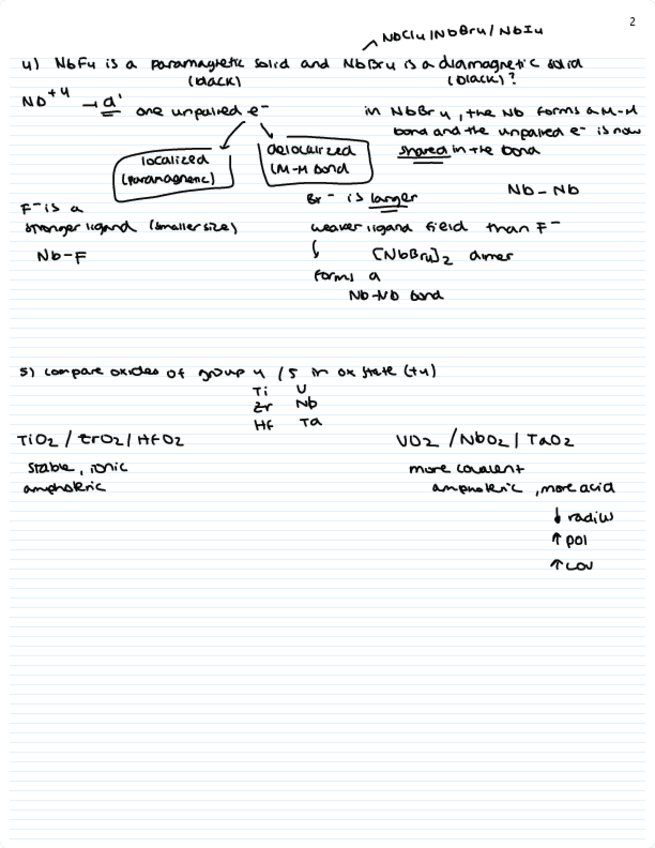 2
NbCl4/NbBr4/NbI4
4) NbF4 is a paramagnetic solid and NbBr4 is a diamagnetic solid
(black) (black)?
Nb+4 → d1 one unpaired e-
in NbBr4, the Nb forms a M-M
bond and the unpaired e- is now
shared in the bond
localized
(paramagnetic)
delocalized
(M-M bond
Nb-Nb
F- is a
stronger ligand (smaller size)
Nb-F
Br- is larger
weaker ligand field than F-
↓ [NbBr4]2 dimer
forms a
Nb-Nb bond
5) compare oxides of group 4 /5 in ox state (+4)
Ti V
Zr Nb
Hf Ta
TiO2 / ZrO2 / HfO2
stable, ionic
amphoteric
VO2 / NbO2 / TaO2
more covalent
amphoteric, more acid
↓ radius
↑ pol
↑ cov